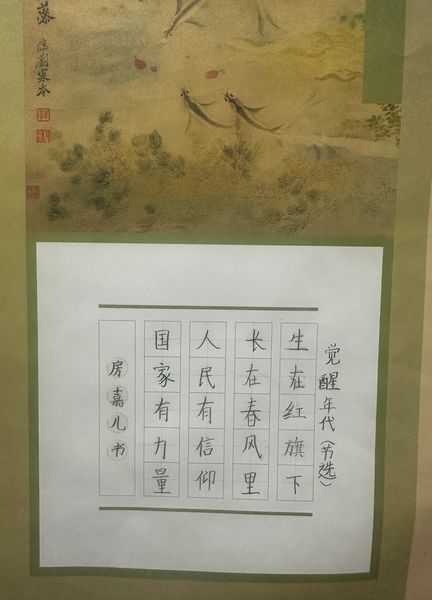 落
臨劉寀本
觉醒年代（节选）
生在红旗下
长在春风里
人民有信仰
国家有力量
房嘉儿书